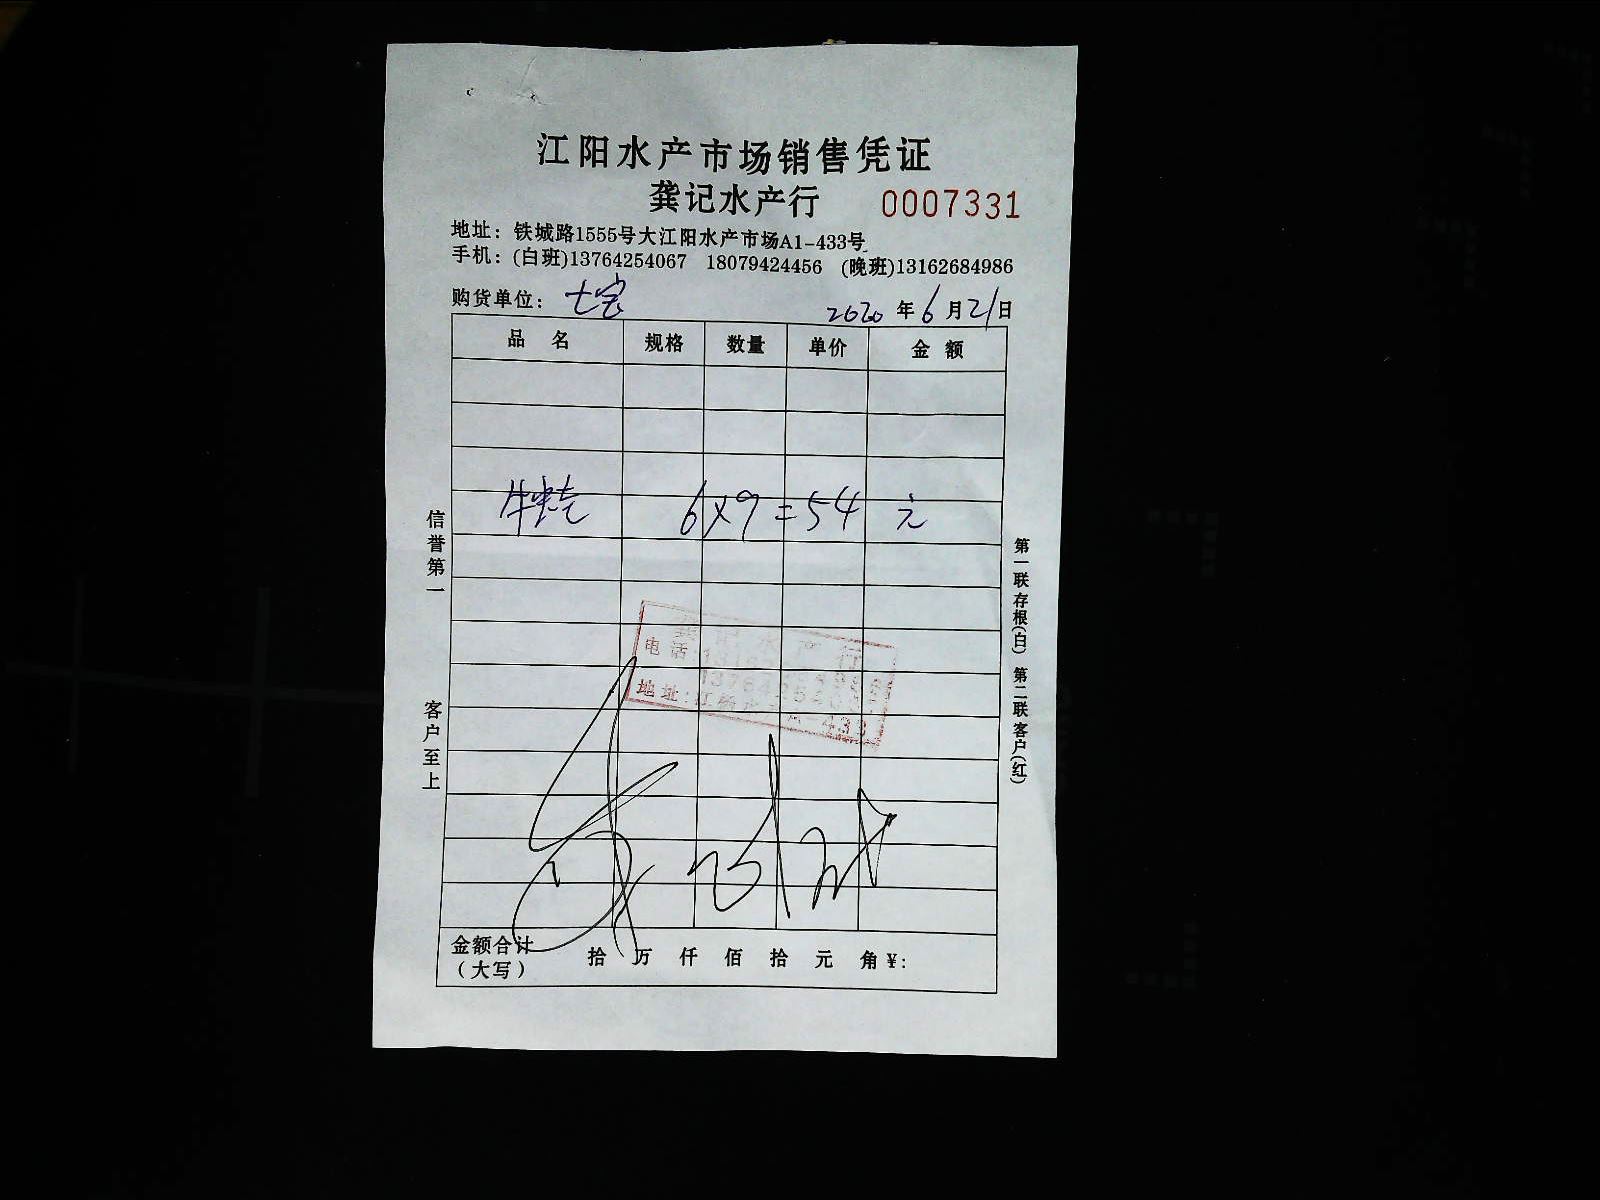 江阳水产市场销售凭证
龚记水产行 0007331
地址：铁城路1555号大江阳水产市场A1-433号
手机：(白班)13764254067 18079424456 (晚班)13162684986
购货单位：七宝 2020年6月21日
品名 规格 数量 单价 金额
牛 6×9=54元
信誉第一
客户至上
第一联存根(白) 第二联客户(红)
龚记水产行
电话:
地址:江杨 A-433
金额合计 拾 万 仟 佰 拾 元 角 ¥:
(大写)